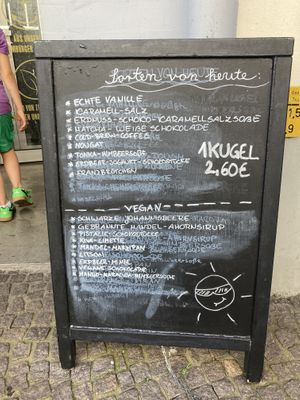 Sorten von heute:
* ECHTE VANILLE
* KARAMELL-SALZ
* ERDNUSS-SCHOKO-KARAMELLSALZSOßE
* MATCHA-WEIßE SCHOKOLADE
* COLD-BREW-COFFEE
* NOUGAT
* TONKA-HIMBEERSOßE
* ERDBEER-JOGHURT-SCHOKOSTÜCKE
* FRANZBRÖTCHEN
1 KUGEL
2,60€
VEGAN
* SCHWARZE JOHANNISBEERE
* GEBRANNTE MANDEL-AHORNSIRUP
* PISTAZIE-SCHOKOSTÜCKE
* LIMETTE
* MANDEL-MARZIPAN
* ERDBEER-MINZE
* VEGANE SCHOKOLADE
* MANGO-MARACUJA-HIMBEERSOßE